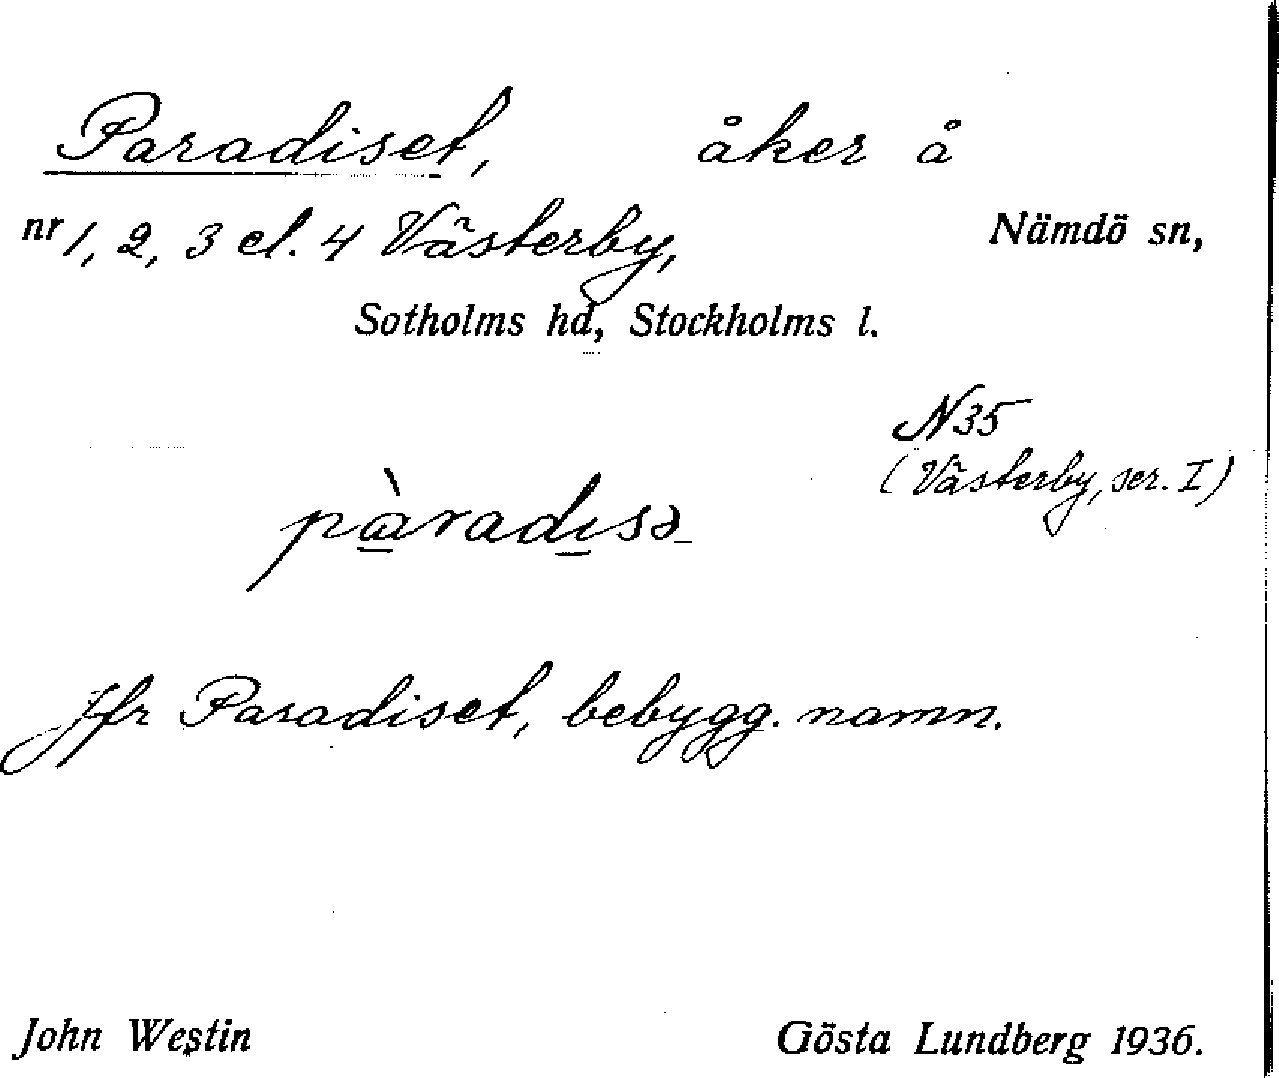 Paradiset, åker å
nr 1, 2, 3 el. 4 Västerby, Nämdö sn,
Sotholms hd, Stockholms l.
N35
(Västerby, ser. I)
pàradɩsə
Jfr Paradiset, bebygg. namn.
John Westin Gösta Lundberg 1936.